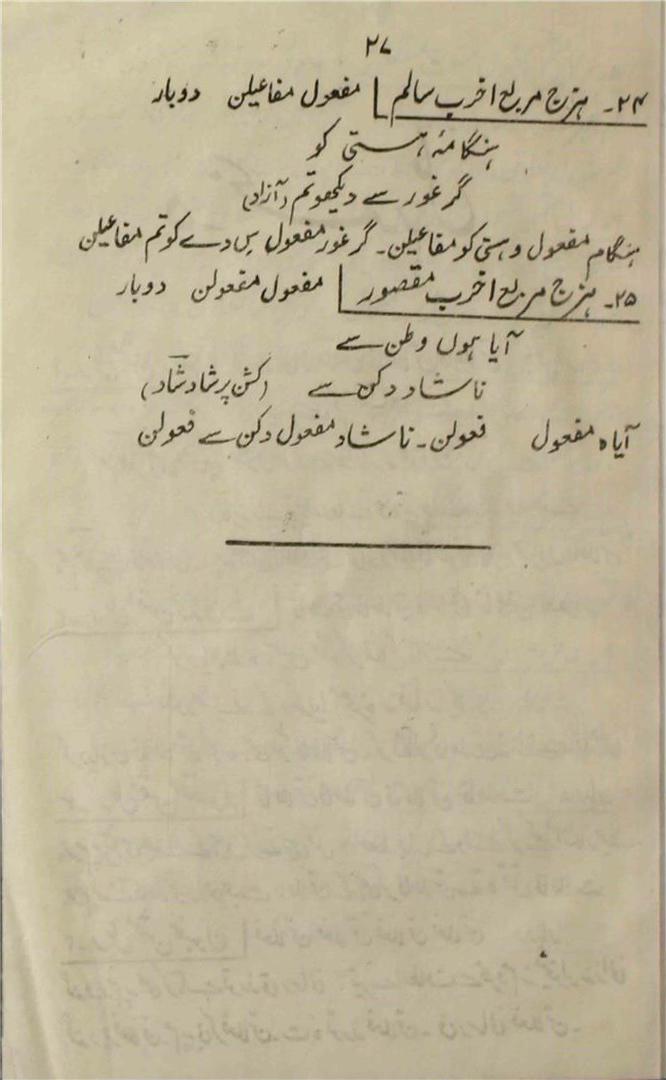 ۲۷
۲۴۔ ہزج مربع اخرب سالم | مفعول مفاعیلن دوبار
ہنگامۂ ہستی کو
گر غور سے دیکھو تم (آزاد)
ہنگام مفعول و ہستی کو مفاعیلن۔ گر غور مفعول سِ دے کو تم مفاعیلن
۲۵۔ ہزج مربع اخرب مقصور | مفعول مفعولن دوبار
آیا ہوں وطن سے
ناشاد دکن سے (کشن پرشاد شاد)
آیاہ مفعول فعولن۔ ناشاد مفعول دکن سے فعولن